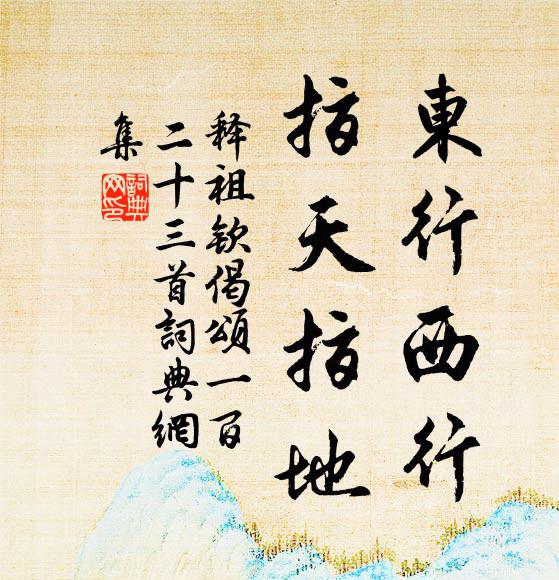 東行西行
指天指地
释祖钦偈頌一百
二十三首詞典網
集
詞典
网印